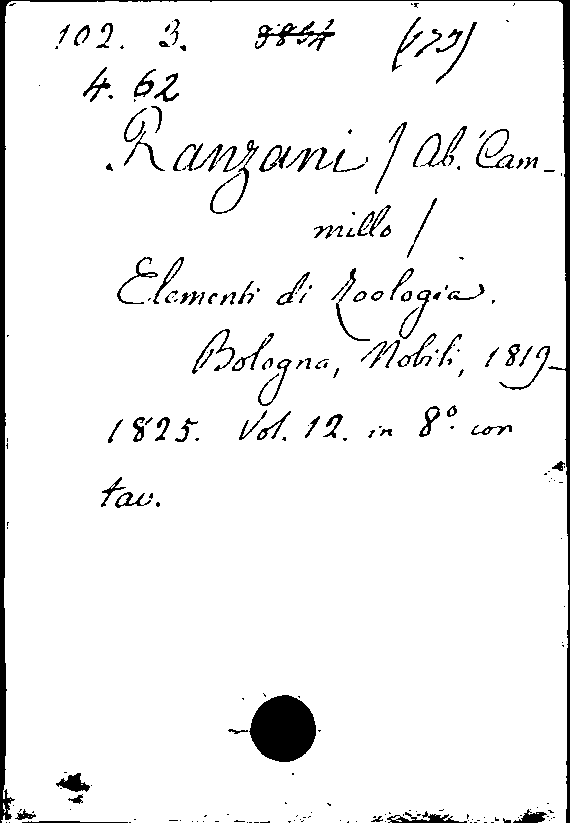 102. 3. 3834 (173)
4. 62
Ranzani / Ab.' Cam-
millo /
Elementi di Zoologia.
Bologna, Nobili, 1819-
1825. Vol. 12. in 8.º con
tav.